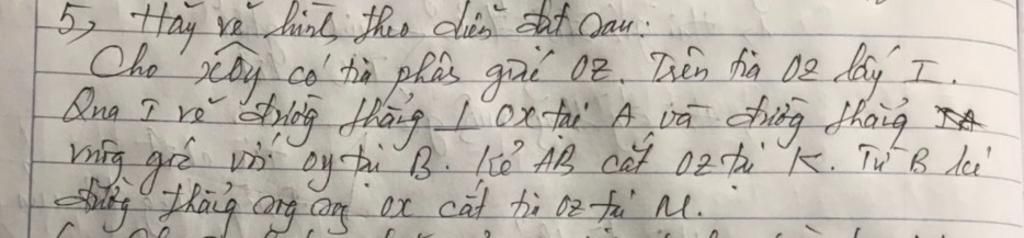 5, Hãy vẽ hình theo diễn đạt sau:
Cho xOy có tia phân giác OZ. Trên tia OZ lấy I.
Qua I vẽ đường thẳng ⊥ OX tại A và đường thẳng
vuông góc với oy tại B. Kẻ AB cắt OZ tại K. Từ B kẻ
đường thẳng song song OX cắt tia OZ tại M.